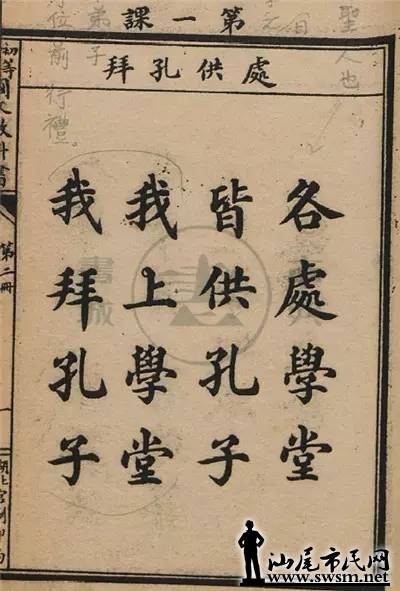 聖人也
第一課
處供孔拜
各處學堂
皆供孔子
我上學堂
我拜孔子
弟子
位前行禮。
初等國文教科書
第二冊
一
汕尾市民网
www.swsm.net